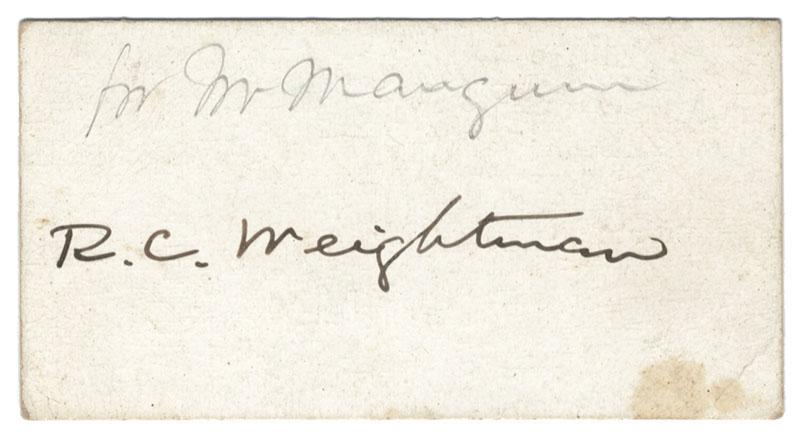 for Mr Mangum
R. C. Weightman